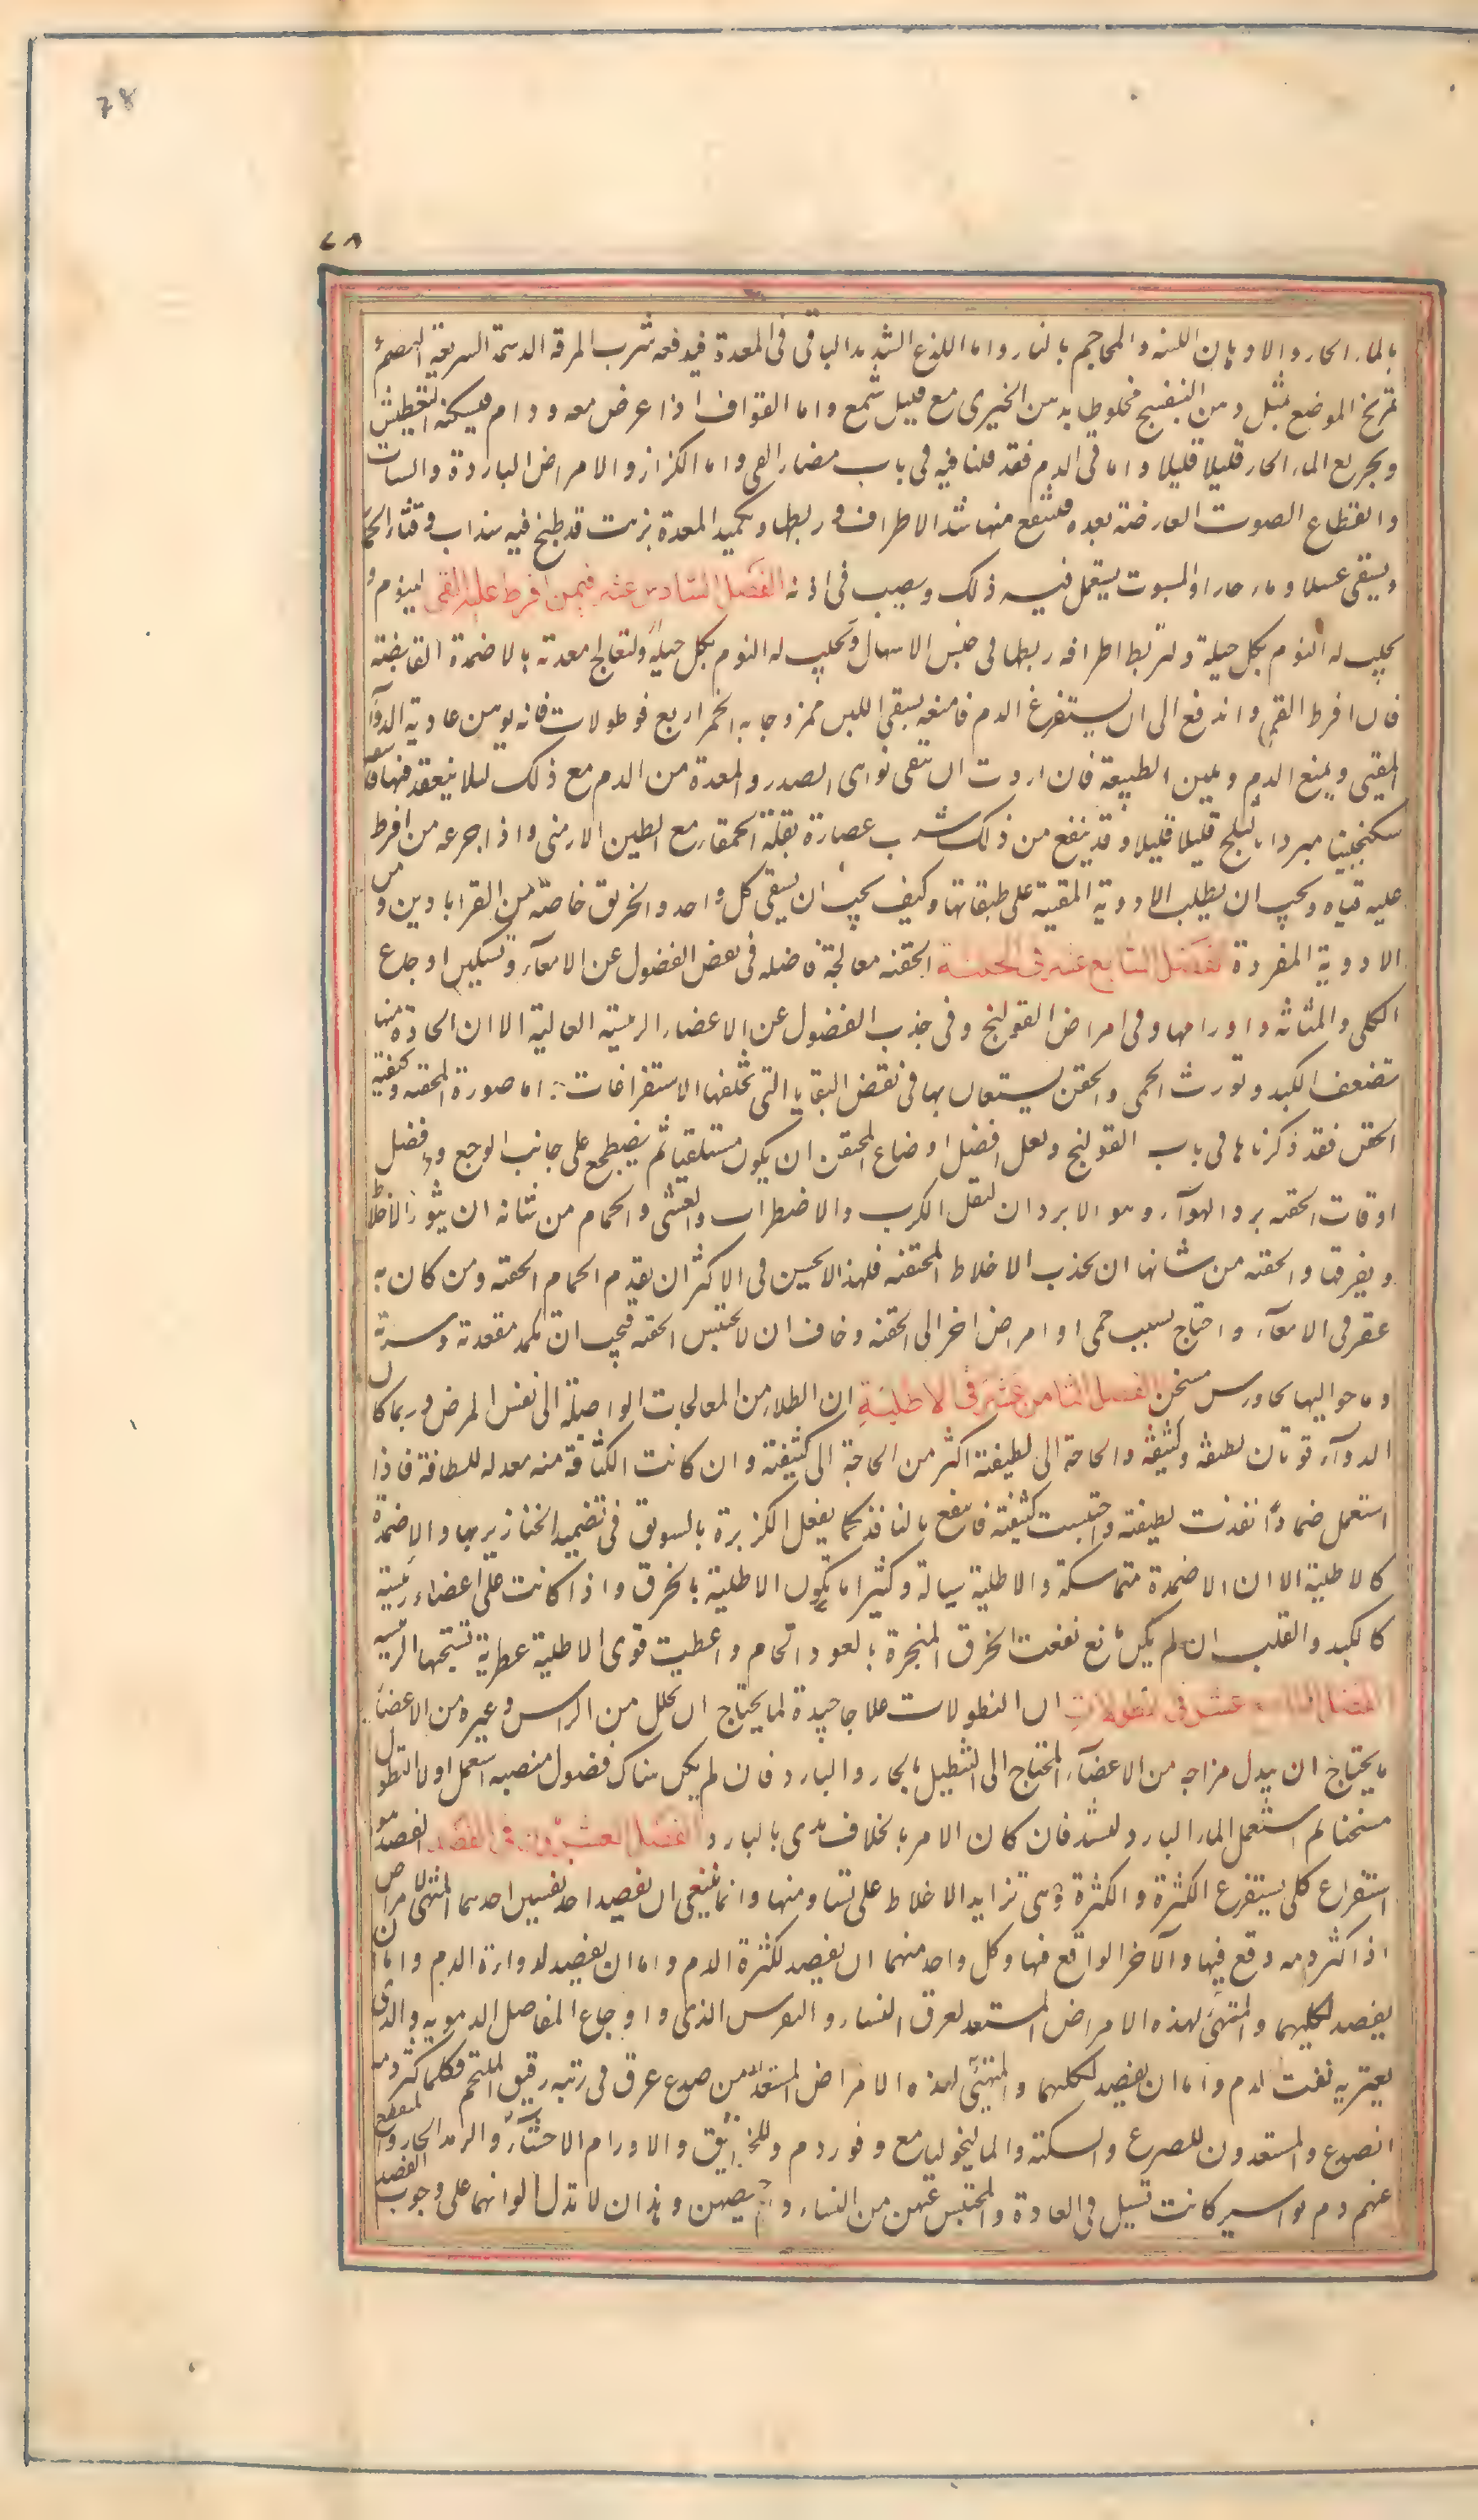 78
٧٨
بالماء الحار والادهان اللينه والمحاجم بالنار واما اللذع الشديد الباقى فى المعدة فيدفعه شرب المرقة الدسمة السريعة الهضم و
تمريخ الموضع بمثل دهن البنفسج مخلوطا بدهن الخيرى مع قليل شمع واما الفواق اذا عرض معه ودام فيسكنه التعطيش
وتجريع الماء الحار قليلا قليلا واما قى الدم فقد قلنا فيه فى باب مضار القى واما الكزاز والامراض الباردة والسبات
وانقطاع الصوت العارضة بعده فينفع منها شد الاطراف و ربطها وتكميد المعدة بزيت قد طبخ فيه سذاب و قثاء الحمار
ويسقى عسلا وماء حارا والمسبوت يستعمل فيه ذلك ويصب فى اذنه الفصل السادس عشر فيمن افرط عليه القى لينوم و
يجلب له النوم بكل حيلة ولتربط اطرافه ربطها فى حبس الاسهال ويجلب له النوم بكل حيلة ولتعالج معدته بالاضمدة القابضة
فان افرط القى واندفع الى ان يستفرغ الدم فامنعه بسقى اللبن ممزوجا به الخمر اربع قوطولات فانه يوهن عادية الدوآء
المقيى ويمنع الدم ويلين الطبيعة فان اردت ان تنقى نواحى الصدر والمعدة من الدم مع ذلك لئلا ينعقد فيها فاسقه
سكنجبينا مبردا بالثلج قليلا قليلا وقد ينفع من ذلك شرب عصارة بقلة الحمقاء مع الطين الارمنى واذا جرعه من افرط
عليه قياه ويجب ان يطلب الادوية المقيية على طبقاتها وكيف يجب ان يسقى كل واحد والخربق خاصة من القراباذين و من
الادوية المفردة الفصل السابع عشر فى الحقنة الحقنه معالجة فاضله فى نفض الفضول عن الامعآء وتسكين اوجاع
الكلى والمثانه واورامها وفى امراض القولنج وفى جذب الفضول عن الاعضاء الرئيسة العالية الا ان الحادة منها
تضعف الكبد وتورث الحمى والحقن يستعان بها فى نفض البقايا التى تخلفها الاستفراغات اما صورة الحقنه وكيفية
الحقن فقد ذكرناها فى باب القولنج ولعل افضل اوضاع المحتقن ان يكون مستلقيا ثم يضطجع على جانب الوجع وافضل
اوقات الحقنه برد الهوآء وهو الابردان ليقل الكرب والاضطراب والغشى والحمام من شانه ان يثور الاخلاط
ويفرقها والحقنه من شانها ان تجذب الاخلاط المحتقنه فلهذا لا يحسن فى الاكثر ان يقدم الحمام الحقنه ومن كان به
عقر فى الامعآء واحتاج بسبب حمى او امراض اخر الى الحقنه وخاف ان لا تحتبس الحقنه فيجب ان تكمد مقعدته وسرته
وما حواليها بجاورس مسخن الفصل الثامن عشر فى الاطلية ان الطلاء من المعالجات الواصلة الى نفس المرض وربما كان
للدوآء قوتان لطيفة وكثيفة والحاجة الى لطيفته اكثر من الحاجة الى كثيفته وان كانت الكثافة منه معدله للطافة فاذا
استعمل ضمادًا نفذت لطيفته واحتبست كثيفته فانتفع بالنافذ كما يفعل الكزبرة بالسويق فى تضميد الخنازير بها والاضمدة
كالاطلية الا ان الاضمدة متماسكة والاطلية سيالة وكثيرا ما تكون الاطلية بالخرق واذا كانت على اعضاء رئيسة
كالكبد والقلب ان لم يكن مانع نفعت الخرق المبخرة بالعود الخام واعطيت قوى الاطلية عطرية تستحبها الرئيسة
الفصل التاسع عشر فى النطولات ان النطولات علاجا جيدة لما يحتاج ان يحلل من الراس وغيره من الاعضاء و
ما يحتاج ان يبدل مزاجه من الاعضآء المحتاج الى التنطيل بالحار والبارد فان لم يكن هناك فضول منصبه استعمل اولا النطول
مسخنا ثم استعمل الماء البارد ليشد فان كان الامر بالخلاف بدى بالبارد الفصل العشرون فى الفصد الفصد هو
استفراغ كلى يستفرغ الكثرة والكثرة هى تزايد الاخلاط على تساو منها وانما ينبغى ان يفصد احد نفسين احدهما المتهيى لامراض
اذا كثر دمه وقع فيها والآخر الواقع فيها وكل واحد منهما اما ان يفصد لكثرة الدم واما ان يفصد لرداءة الدم واما ان
يفصد لكليهما والمتهيى لهذه الامراض المستعد لعرق النساء والنقرس الدموى واوجاع المفاصل الدمويه والذى
يعتريه نفث الدم واما ان يفصد لكليهما والمتهيى لهذه الامراض المستعد من صدع عرق فى رئته رقيق الملتحم فكلما كثر دمه
انصدع والمستعدون للصرع والسكته والماليخوليا مع وفور دم وللخوانيق والاورام الاحشآء والرمد الحار والمنقطع
عنهم دم بواسير كانت تسيل فى العادة والمحتبس عنهن من النساء دم حيضهن وهذان لا تدل الوانهما على وجوب الفصد